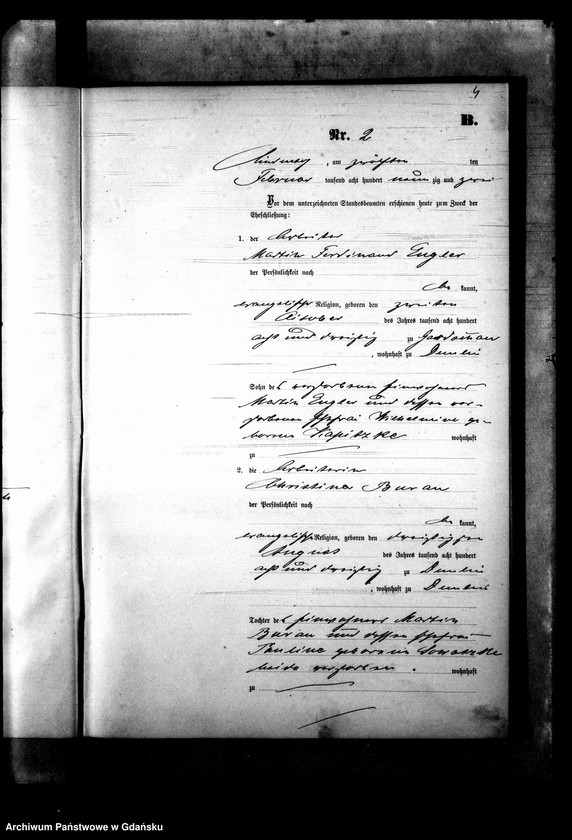 4
B.
Nr. 2
, am zwölften ten
Februar tausend acht hundert neun zig und zwei
Vor dem unterzeichneten Standesbeamten erschienen heute zum Zweck der
Eheschließung:
1. der Arbeiter
Martin Ferdinand Engler
der Persönlichkeit nach
be kannt,
evangelischer Religion, geboren den zweiten
October des Jahres tausend acht hundert
acht und dreißig zu
, wohnhaft zu Demlin
Sohn des verstorbenen Einwohners
Martin Engler und dessen ver-
storbenen Ehefrau Wilhelmine ge-
borenen wohnhaft
zu
2. die Arbeiterin
Christina Buran
der Persönlichkeit nach
be kannt,
evangelischer Religion, geboren den dreißigsten
August des Jahres tausend acht hundert
acht und dreißig zu Demlin
, wohnhaft zu Demlin
Tochter des Einwohners Martin
Buran und dessen Ehefrau
Pauline geborenen
beide verstorben . wohnhaft
zu
Archiwum Państwowe w Gdańsku